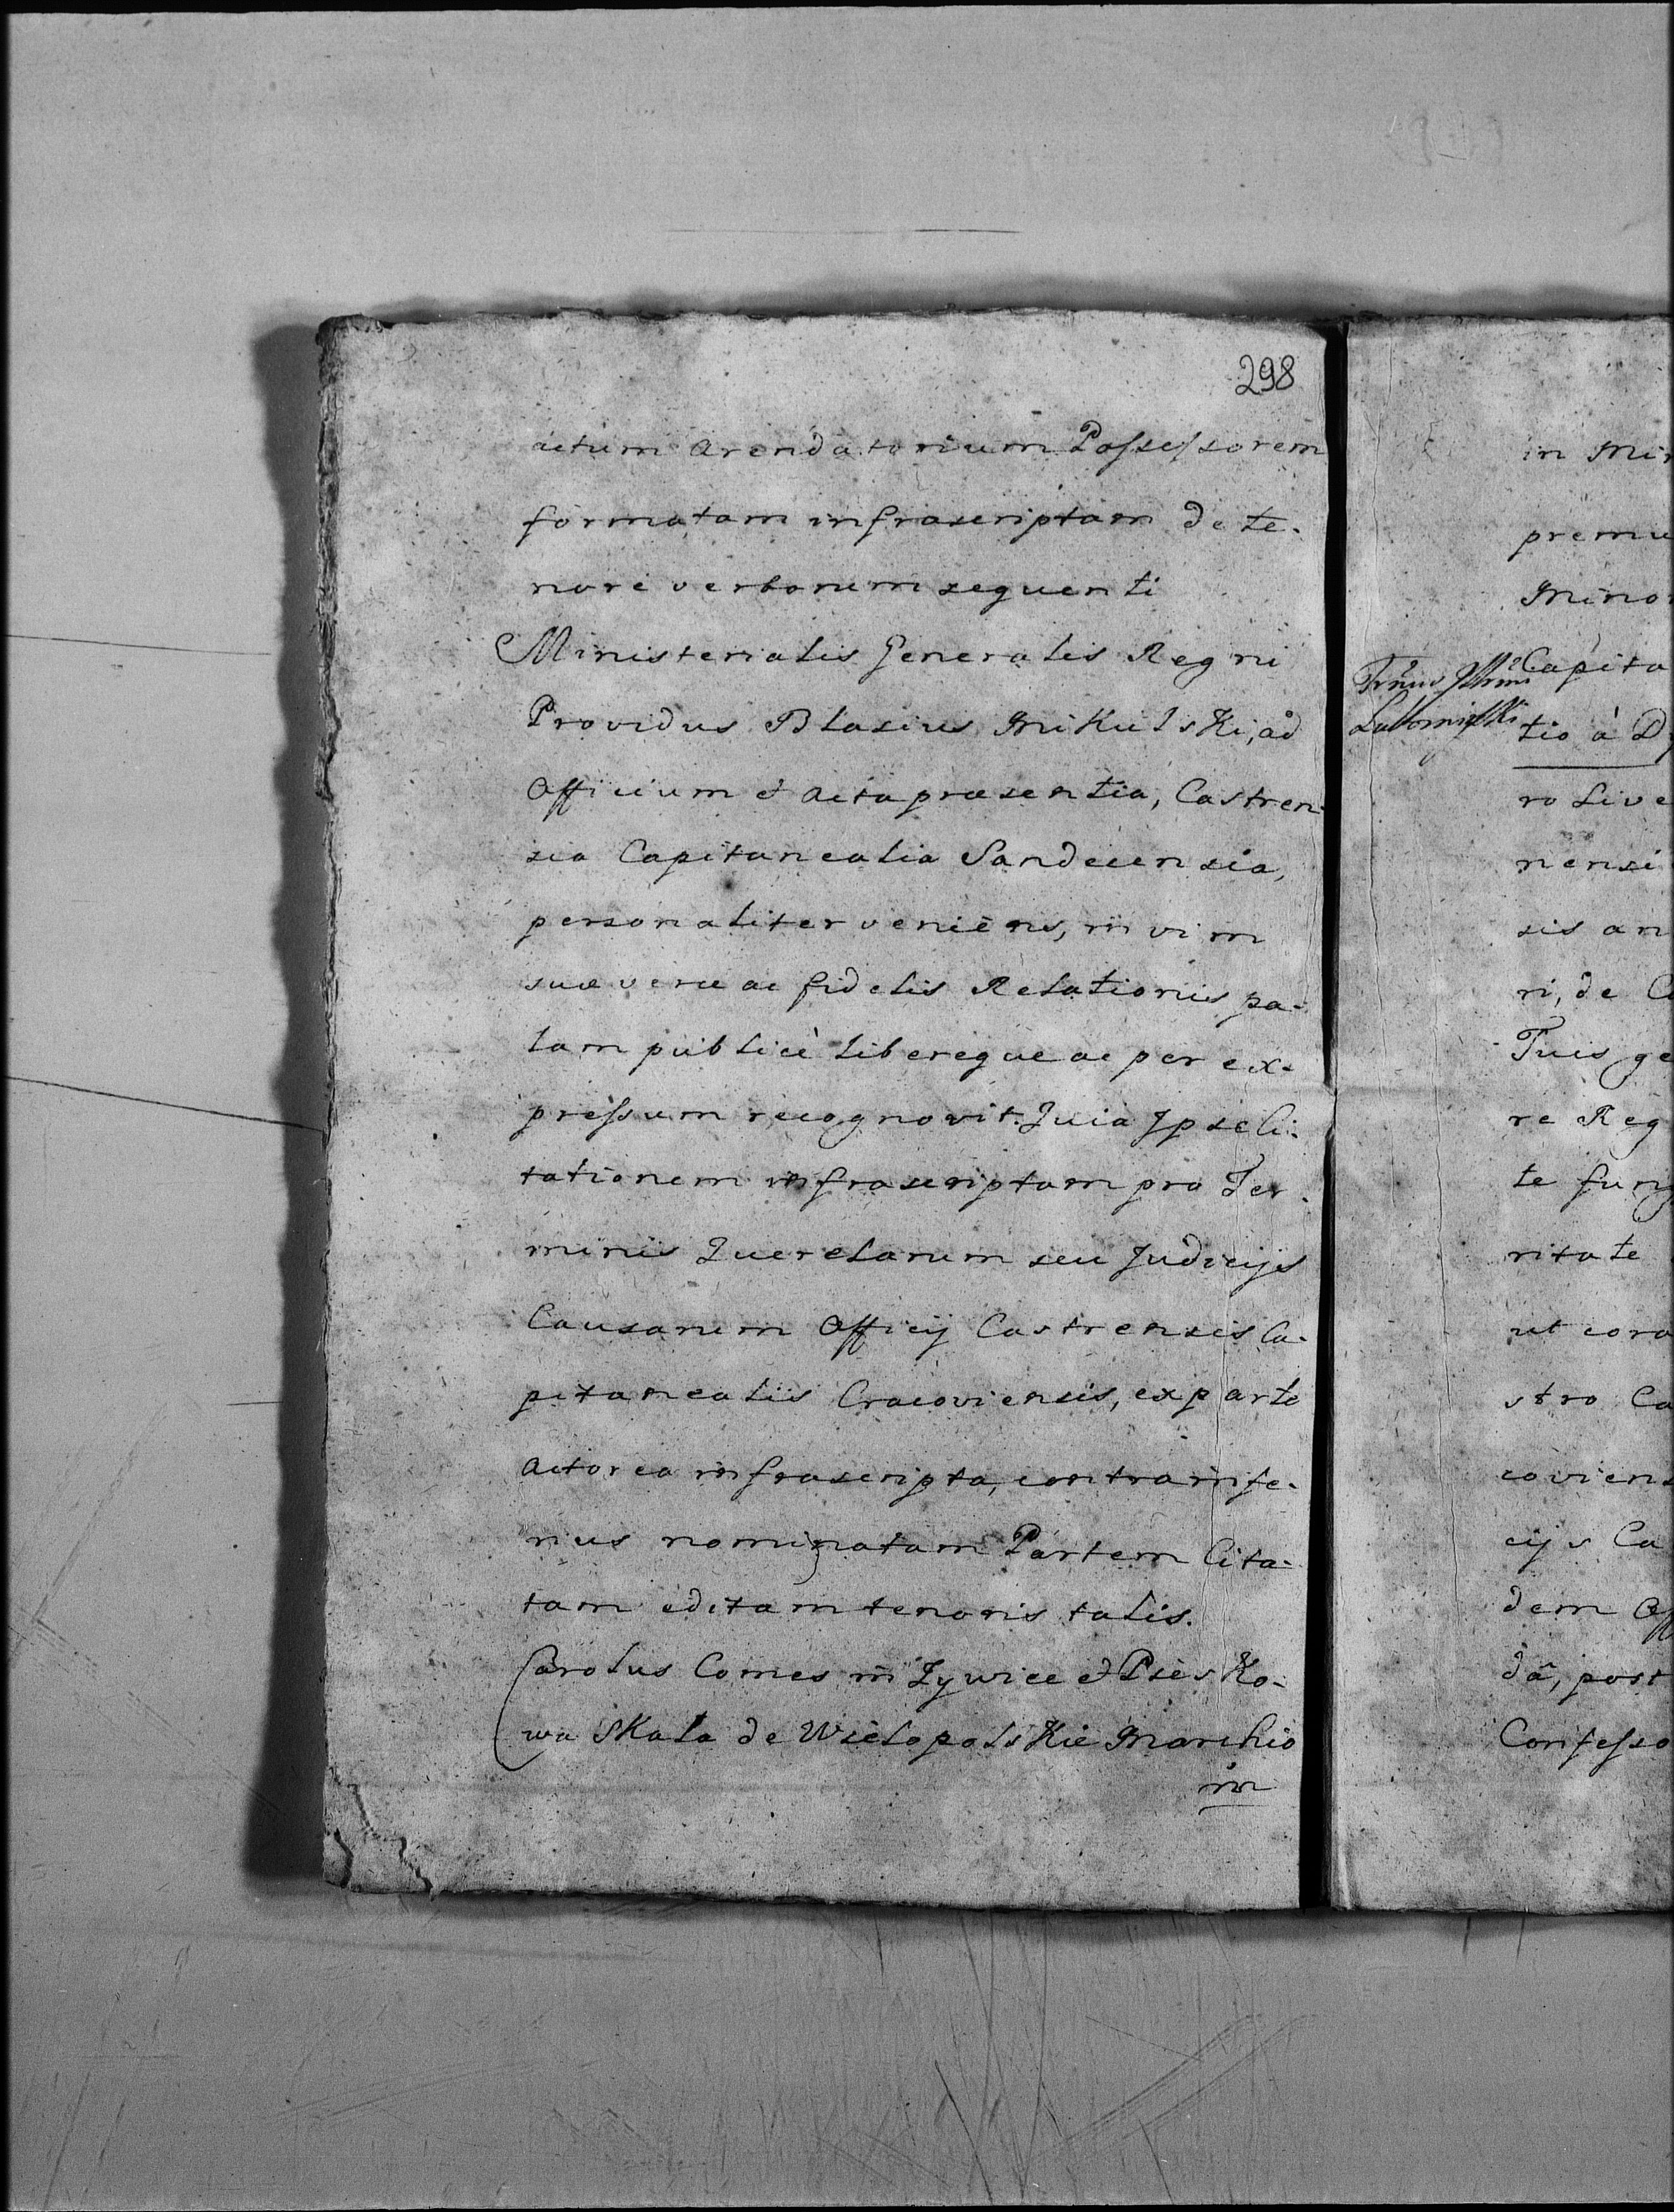 298
actum arendatorium Possessorem
formatam infrascriptam de te-
nore verborum sequenti
Ministerialis Generalis Regni
Providus Blasius Mikulski, ad
Officium et acta præsentia, Castren-
sia Capitanealia Sandecensia,
personaliter veniens, in vim
suæ veræ ac fidelis Relationis pa-
lam publicè libereque ac per ex-
pressum recognovit. Quia Ipse Ci-
tationem infrascriptam pro Ter-
minis Querelarum seu Judicijs
Causarum Officij Castrensis Ca-
pitanealis Cracoviensis, ex parte
actorea infrascripta, contra infe-
rius nominatam Partem Cita-
tam editam tenoris talis.
Carolus Comes in Zywiec et Piesko-
wa Skała de Wielopolskie Marchio
in
in Mi
premu
Mino
Capita
Lubomirski
tio à D
ro Live
nensi
sis an
ri, de C
Tuis ge
re Reg
te fung
ritate
ut cora
stro Ca
coviens
cijs Ca
dem Off
dã, post
Confesso